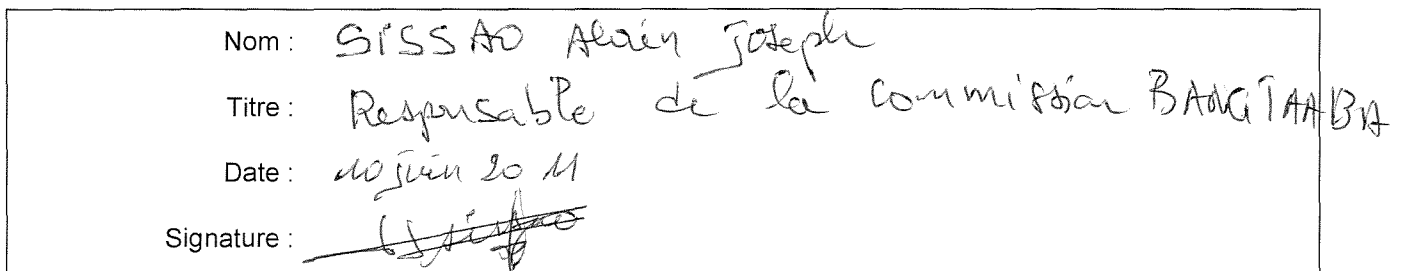 Nom : SISSAO Alain Joseph
Titre : Responsable de la Commission BANGTAABA
Date : 10 juin 2011
Signature :